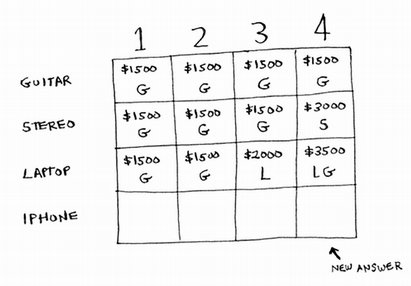 1 2 3 4
GUITAR $1500 G $1500 G $1500 G $1500 G
STEREO $1500 G $1500 G $1500 G $3000 S
LAPTOP $1500 G $1500 G $2000 L $3500 LG
IPHONE
NEW ANSWER